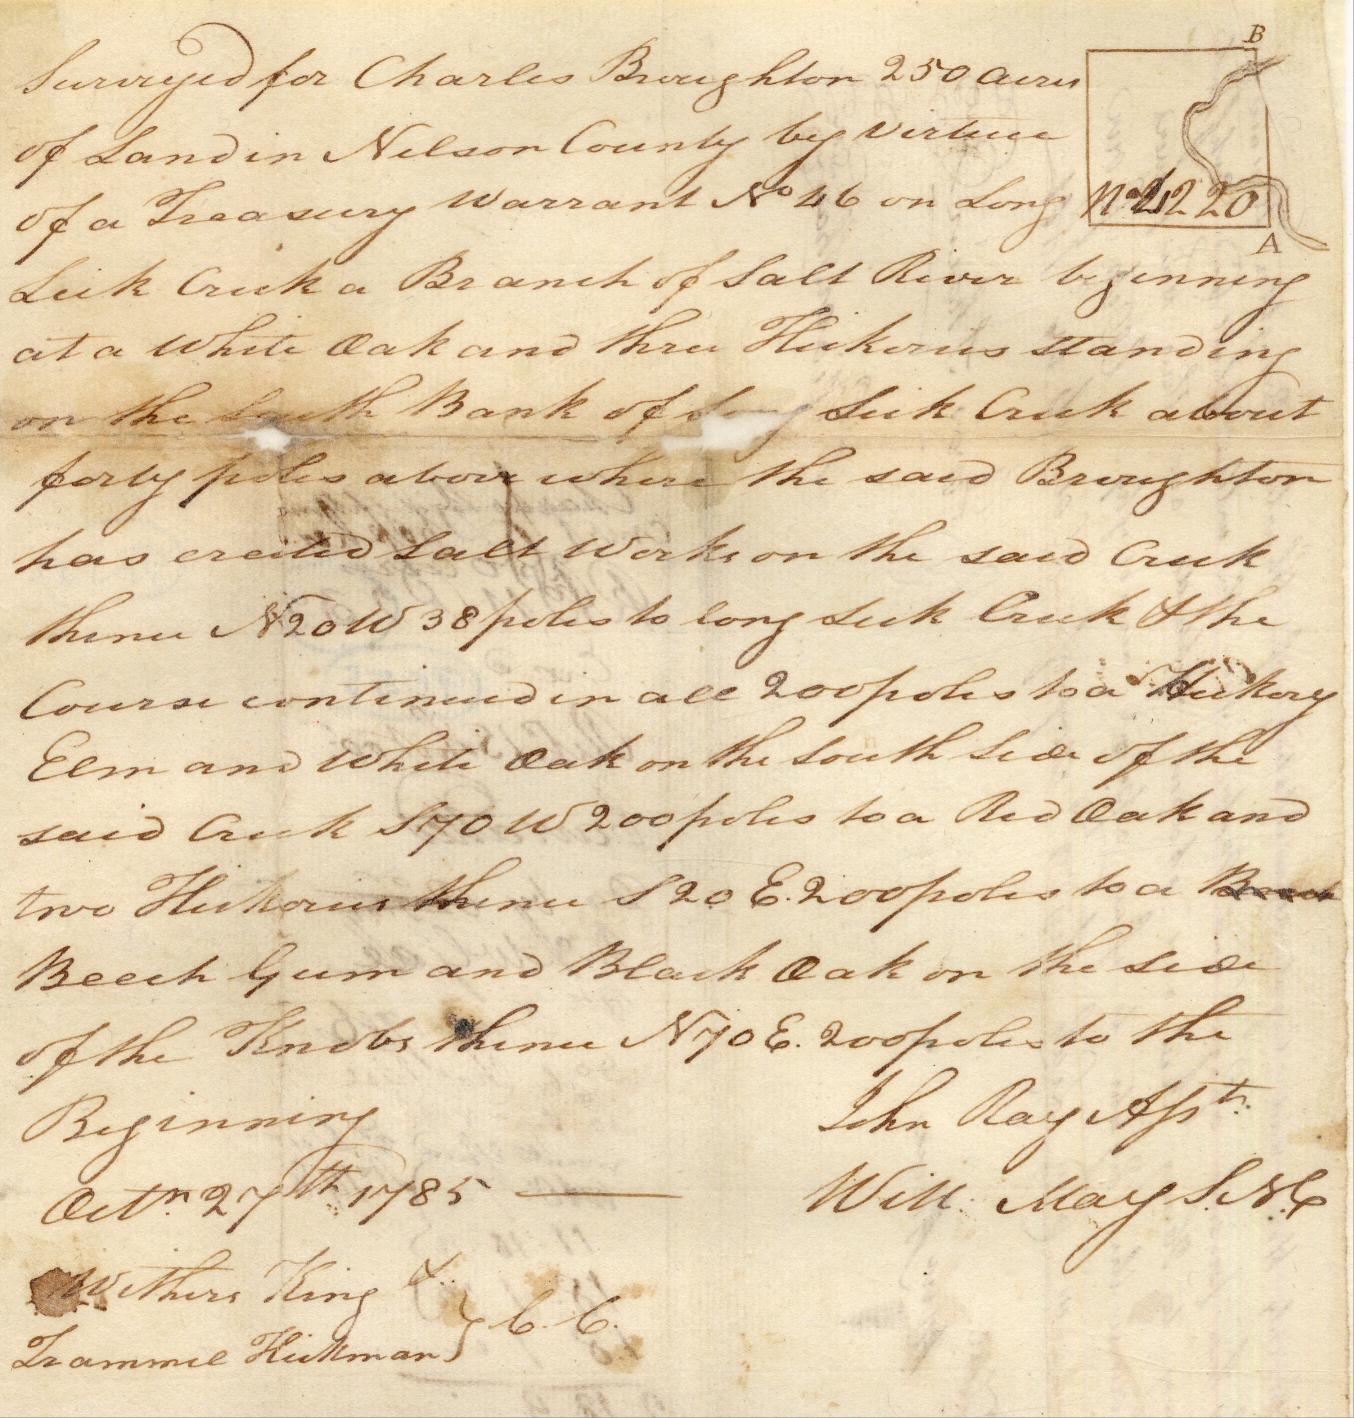 B
Surveyed for Charles Broughton 250 acres
of Land in Nelson County by virtue
of a Treasury Warrant No 46 on Long
No 4220
A
Lick Creek a Branch of Salt River beginning
at a White Oak and three Hickories standing
on the South Bank of Long Lick Creek about
forty poles above where the said Broughton
has erected Salt Works on the said Creek
thence N20W 38 poles to long Lick Creek & the
Course continued in all 200 poles to a Hickory
Elm and White Oak on the South Side of the
said Creek S70W 200 poles to a Red Oak and
two Hickories thence S20E. 200 poles to a
Beech Gum and Black Oak on the side
of the Knobs thence N70E. 200 poles to the
Beginning
John Ray Asst.
Octr. 27th 1785
Will. May S.N.C
Withers King &
Trammel Hickman } C. C.